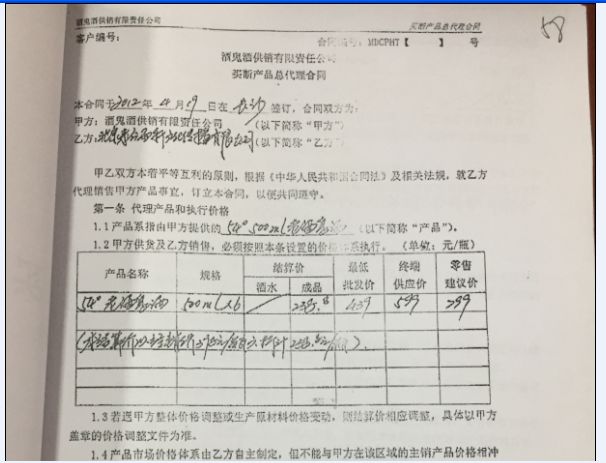 酒鬼酒供销有限责任公司 买断产品总代理合同
58
客户编号: 合同编号: MDCPHT【 】 号
酒鬼酒供销有限责任公司
买断产品总代理合同
本合同于2012年 4 月 9 日在 长沙 签订, 合同双方为:
甲方: 酒鬼酒供销有限责任公司 (以下简称“甲方”)
乙方: 有限公司 (以下简称“乙方”)
甲乙双方本着平等互利的原则, 根据《中华人民共和国合同法》及相关法规, 就乙方
代理销售甲方产品事宜, 订立本合同, 以便共同遵守。
第一条 代理产品和执行价格
1.1 产品系指由甲方提供的 54° 500ml 老酒鬼酒 (以下简称“产品”)。
1.2 甲方供货及乙方销售, 必须按照本条设置的价格体系执行。 (单位: 元/瓶)
产品名称 规格 结算价 最低批发价 终端供应价 零售建议价
酒水 成品
54° 老酒鬼酒 500ml×6 / 439 599 799
1.3 若遇甲方整体价格调整或生产原材料价格变动, 则结算价相应调整, 具体以甲方
盖章的价格调整文件为准。
1.4 产品市场价格体系由乙方自主制定, 但不能与甲方在该区域的主销产品价格相冲